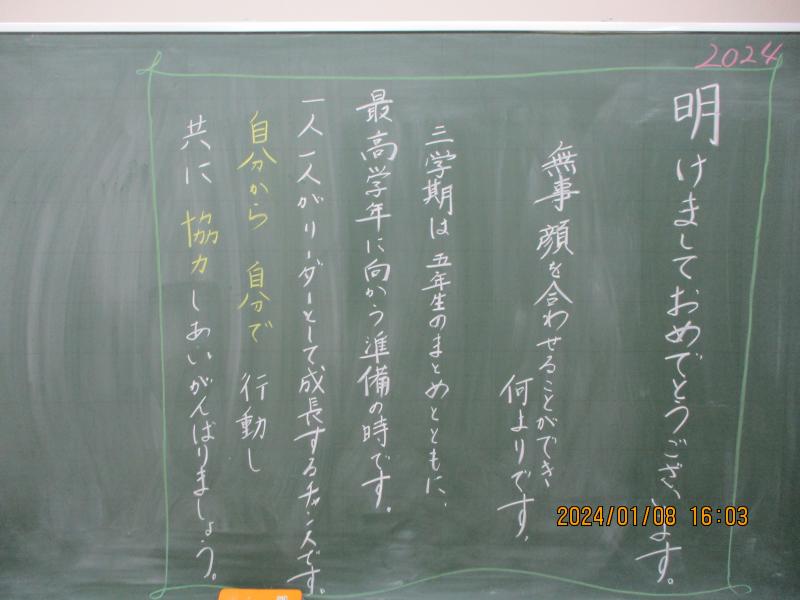 2024
明けましておめでとうございます。
無事 顔を合わせることができ
何よりです。
三学期は 五年生のまとめとともに、
最高学年に向かう準備の時です。
一人一人がリーダーとして、成長するチャンスです。
自分から 自分で 行動し
共に 協力しあい がんばりましょう。
2024/01/08 16:03